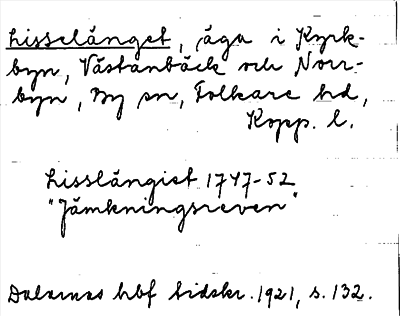 Lisselänget, äga i Kyrk-
byn, Västanbäck och Norr-
byn, By sn, Folkare hd,
Kopp. l.
Lisslängiet 1747-52
"Jämkningsreven"
Dalarnas hbf tidskr. 1921, s. 132.